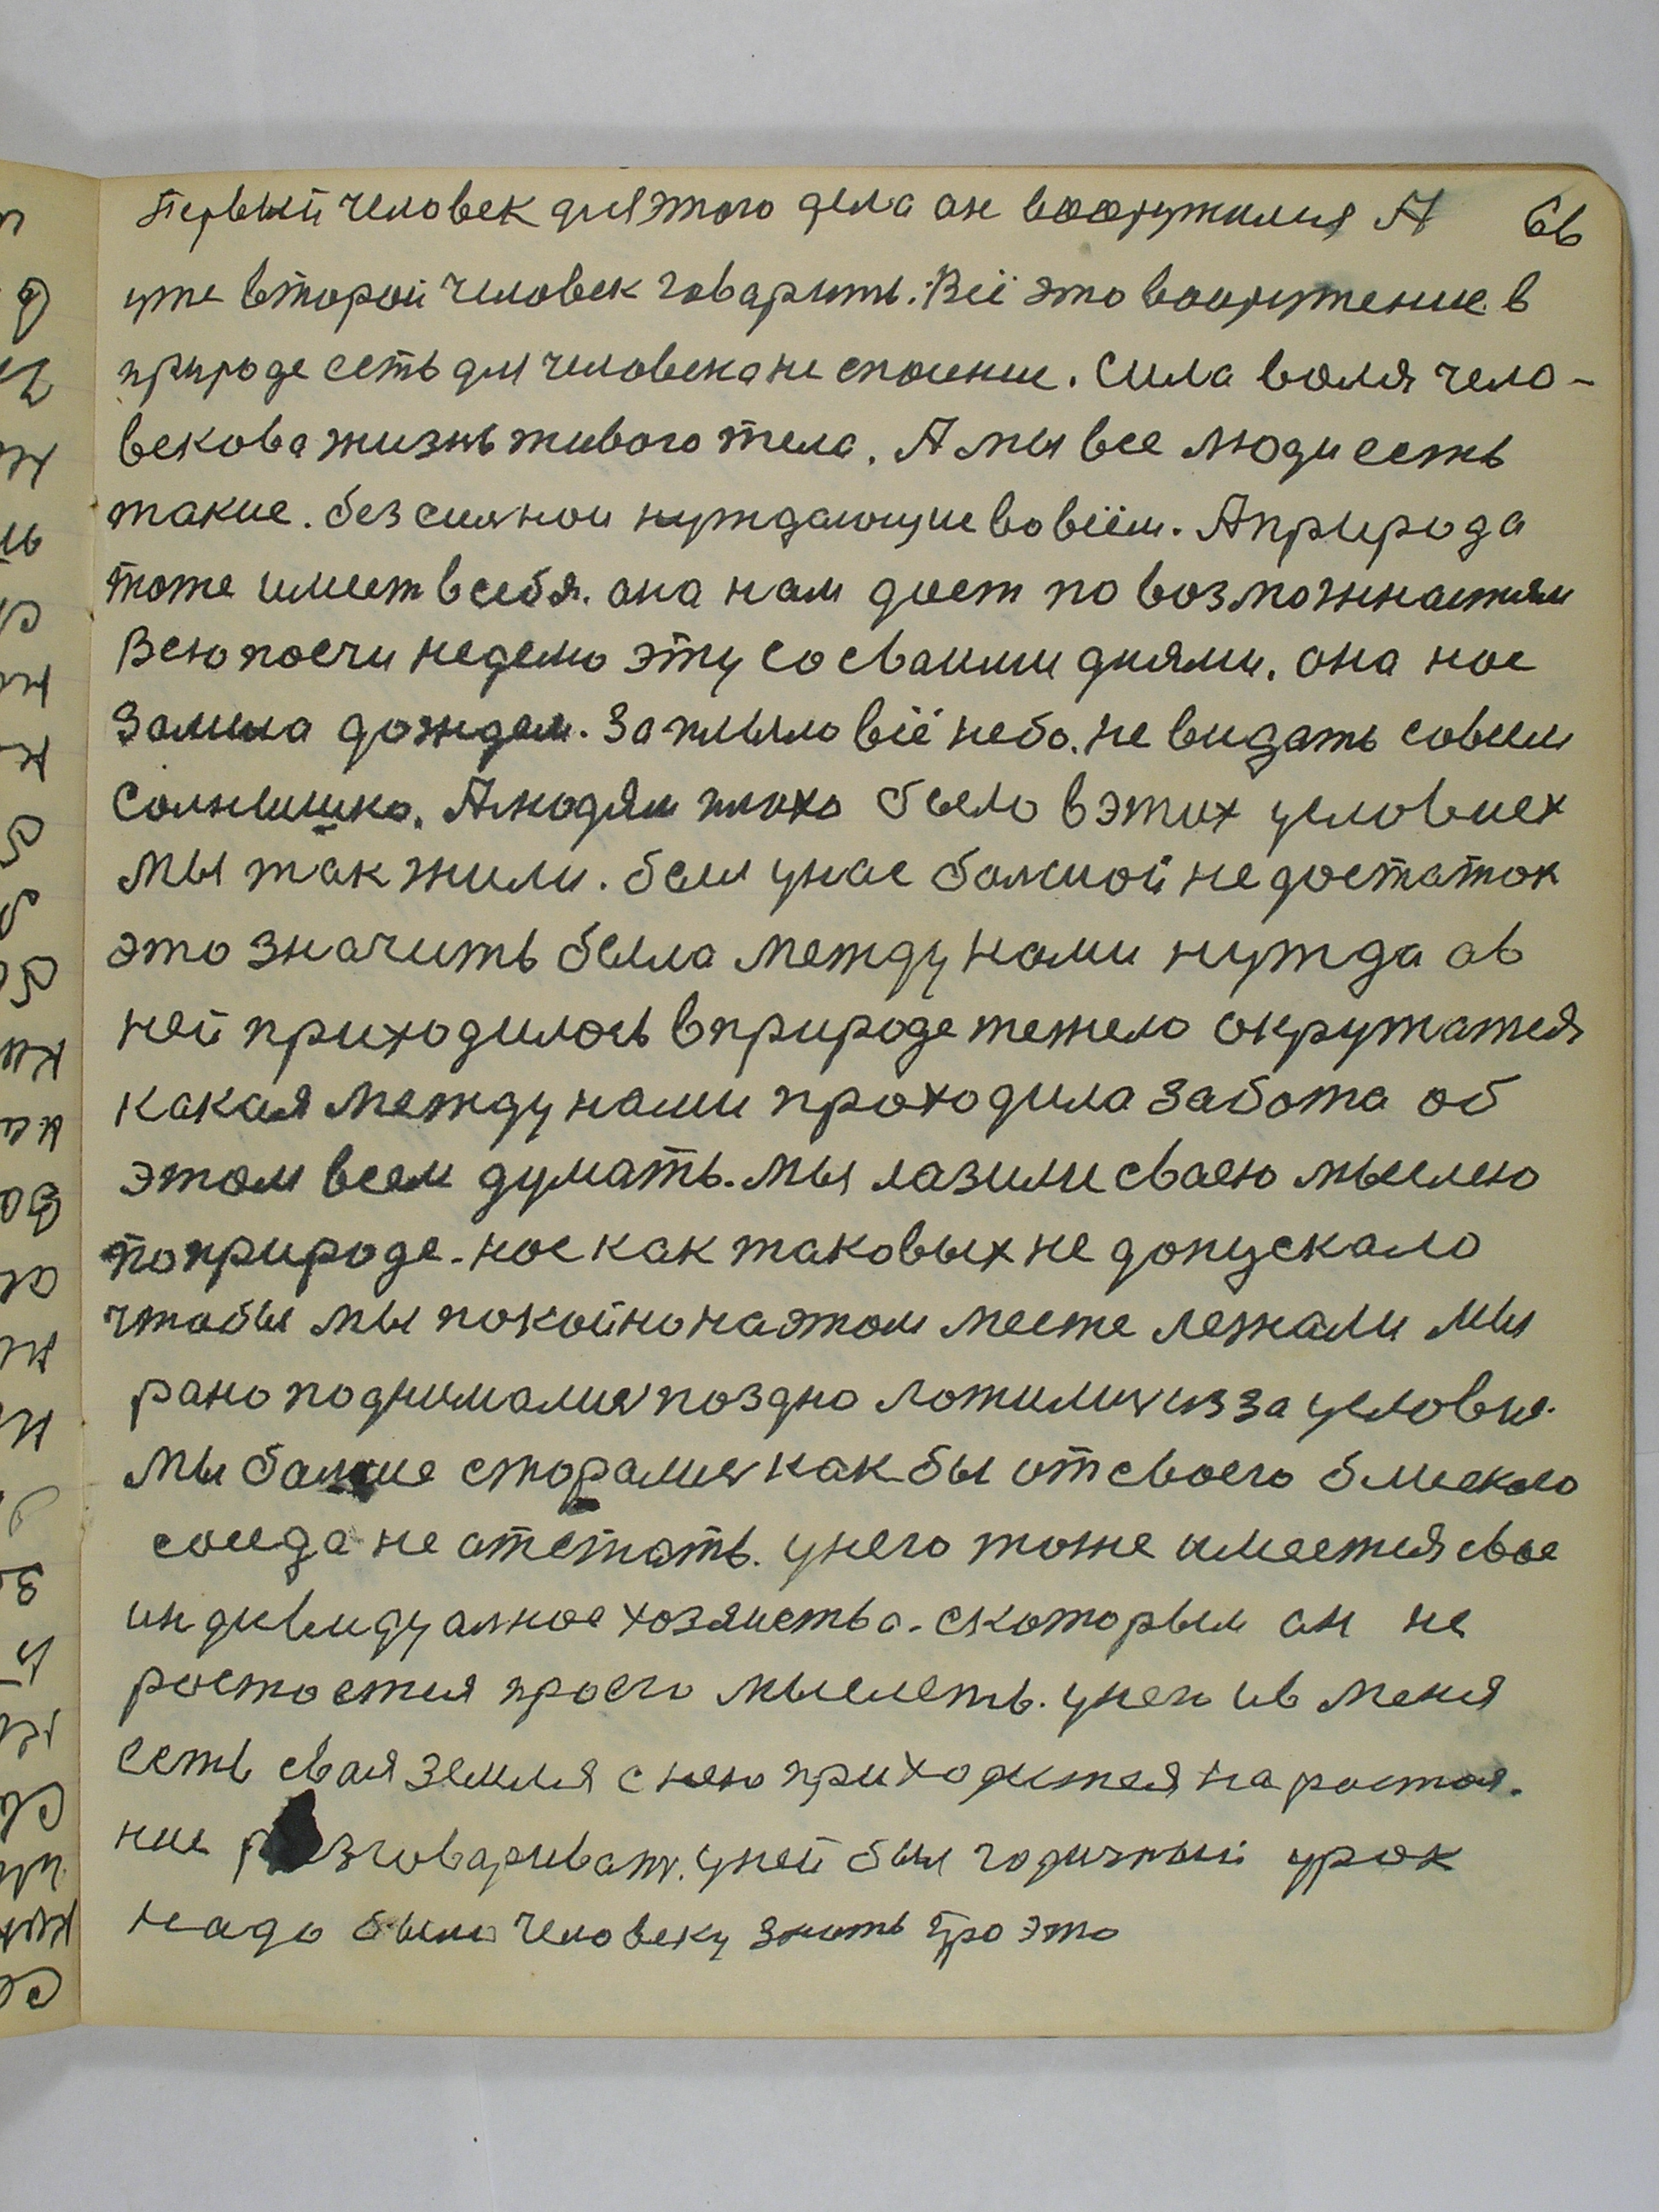 Первый человек для этого дела он вооружился А 66
уже второй человек говарить. Всё это вооружение в
природе есть для человека не споение. Сила воля чело-
векова жизнь живого тела. А мы все люди есть
такие. безсилнои нуждающие во всём. А природа
тоже имеет в себя. она нам дает по возможнастям
Всю посчи неделю эту со сваими днями. она нас
залила дождем. Заплыло всё небо. не видать совсем
Солнышко. А людям плохо было в этих условиех
мы так жили. был у нас балшой не достаток
это значить была между нами нужда об
ней приходилось в природе тежело окружатся
какая между нами проходила забота об
этом всем думать. мы лазили сваею мыслею
по природе. нас как таковых не допускало
чтобы мы покойно на этом месте лежали мы
рано поднималися поздно ложилися из за условия.
мы балше сторалися как бы от своего близкого
соседа не отстать. у него тоже имеется свое
индивидуалное хозяиства. с которым он не
ростается про его мыслеть. у него и в меня
есть свая земля с нею приходится на растоя.
ние розговаривать. у ней был годичный урок
надо было человеку знать про это